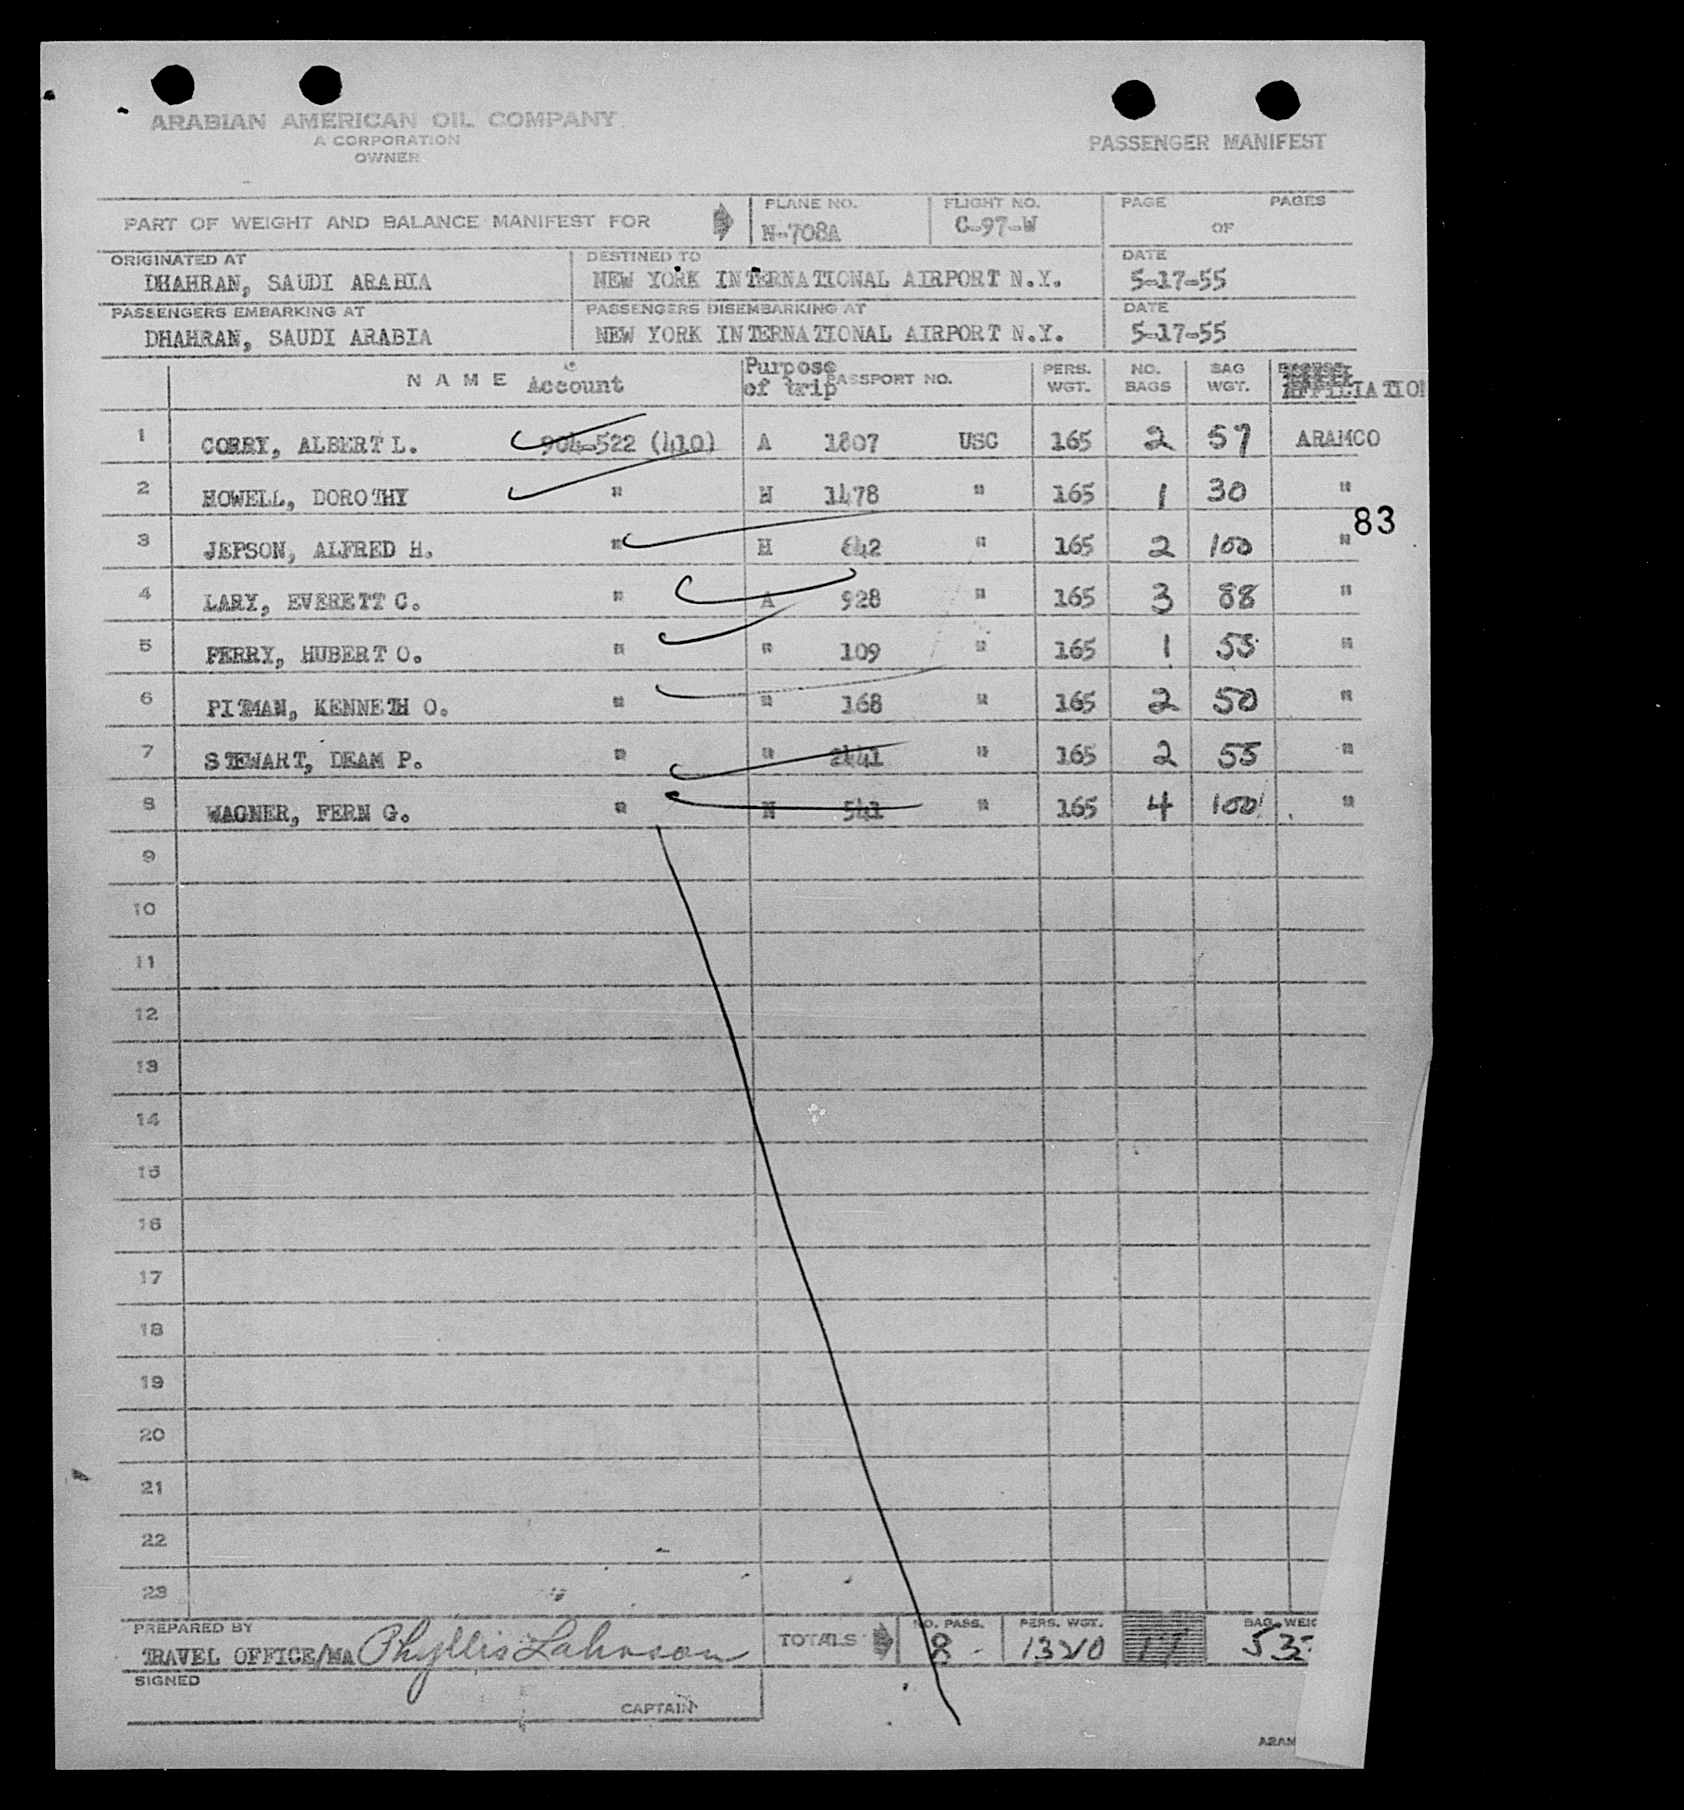 ARABIAN AMERICAN OIL COMPANY
A CORPORATION
OWNER
PASSENGER MANIFEST
PART OF WEIGHT AND BALANCE MANIFEST FOR PLANE NO. N-708A FLIGHT NO. C-97-W PAGE OF PAGES
ORIGINATED AT DESTINED TO DATE
DHAHRAN, SAUDI ARABIA NEW YORK INTERNATIONAL AIRPORT N.Y. 5-17-55
PASSENGERS EMBARKING AT PASSENGERS DISEMBARKING AT DATE
DHAHRAN, SAUDI ARABIA NEW YORK INTERNATIONAL AIRPORT N.Y. 5-17-55
NAME Account Purpose of trip PASSPORT NO. PERS. WGT. NO. BAGS BAG WGT. AFFILIATION
1 CORRY, ALBERT L. 904-522 (410) A 1807 USC 165 2 57 ARAMCO
2 HOWELL, DOROTHY " H 1478 " 165 1 30 "
83
3 JEPSON, ALFRED H. " H 642 " 165 2 100 "
4 LARY, EVERETT C. " A 928 " 165 3 88 "
5 PERRY, HUBERT O. " " 109 " 165 1 55 "
6 PITMAN, KENNETH O. " " 168 " 165 2 50 "
7 STEWART, DEAM P. " " 2441 " 165 2 55 "
8 WAGNER, FERN G. " H 541 " 165 4 100 "
9
10
11
12
13
14
15
16
17
18
19
20
21
22
23
PREPARED BY TOTALS NO. PASS. PERS. WGT. BAG. WEIG
TRAVEL OFFICE/MA Phyllis Lahnson 8 1320 17 535
SIGNED
CAPTAIN
ARAM